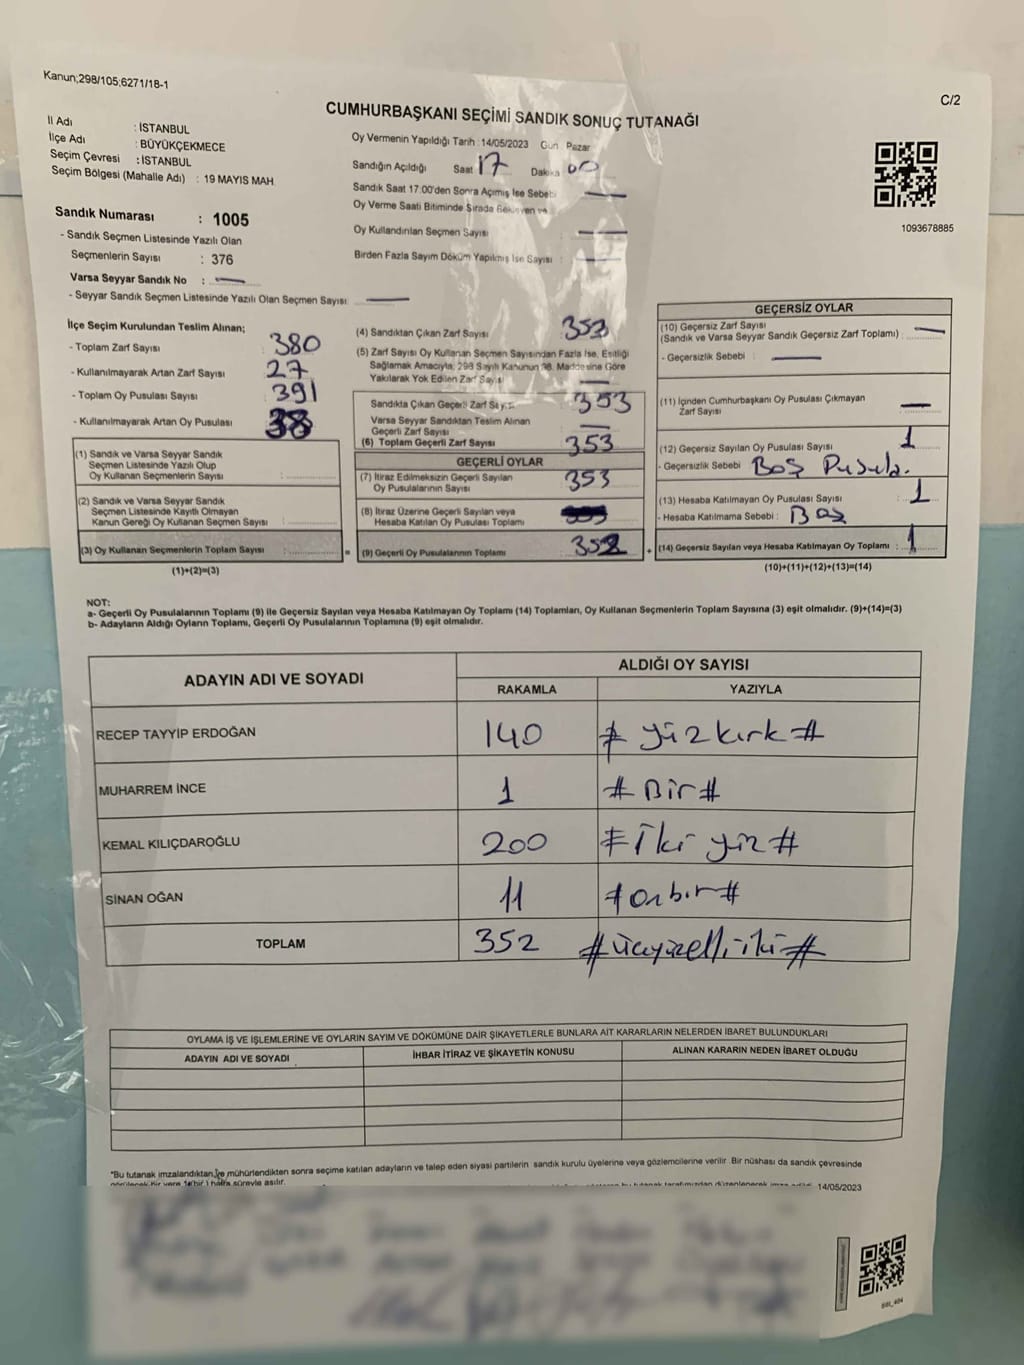 Kanun;298/105;6271/18-1
C/2
CUMHURBAŞKANI SEÇİMİ SANDIK SONUÇ TUTANAĞI
İl Adı : İSTANBUL
İlçe Adı : BÜYÜKÇEKMECE
Seçim Çevresi : İSTANBUL
Seçim Bölgesi (Mahalle Adı) : 19 MAYIS MAH.
Sandık Numarası : 1005
- Sandık Seçmen Listesinde Yazılı Olan
Seçmenlerin Sayısı : 376
Varsa Seyyar Sandık No :
- Seyyar Sandık Seçmen Listesinde Yazılı Olan Seçmen Sayısı:
Oy Vermenin Yapıldığı Tarih : 14/05/2023 Gün : Pazar
Sandığın Açıldığı Saat 17 Dakika 00
Sandık Saat 17:00'den Sonra Açımış İse Sebebi
Oy Verme Saati Bitiminde Sırada Bekleyen ve
Oy Kullandırılan Seçmen Sayısı
Birden Fazla Sayım Döküm Yapılmış İse Sayısı :
1093678885
İlçe Seçim Kurulundan Teslim Alınan;
- Toplam Zarf Sayısı 380
- Kullanılmayarak Artan Zarf Sayısı 27
- Toplam Oy Pusulası Sayısı 391
- Kullanılmayarak Artan Oy Pusulası 38
(1) Sandık ve Varsa Seyyar Sandık
Seçmen Listesinde Yazılı Olup
Oy Kullanan Seçmenlerin Sayısı :
(2) Sandık ve Varsa Seyyar Sandık
Seçmen Listesinde Kayıtlı Olmayan
Kanun Gereği Oy Kullanan Seçmen Sayısı :
(3) Oy Kullanan Seçmenlerin Toplam Sayısı : =
(1)+(2)=(3)
(4) Sandıktan Çıkan Zarf Sayısı 353
(5) Zarf Sayısı Oy Kullanan Seçmen Sayısından Fazla İse, Eşitliği
Sağlamak Amacıyla, 298 Sayılı Kanunun 98. Maddesine Göre
Yakılarak Yok Edilen Zarf Sayısı
Sandıkta Çıkan Geçerli Zarf Sayısı 353
Varsa Seyyar Sandıktan Teslim Alınan
Geçerli Zarf Sayısı
(6) Toplam Geçerli Zarf Sayısı 353
GEÇERLİ OYLAR
(7) İtiraz Edilmeksizin Geçerli Sayılan
Oy Pusulalarının Sayısı 353
(8) İtiraz Üzerine Geçerli Sayılan veya
Hesaba Katılan Oy Pusulası Toplamı
(9) Geçerli Oy Pusulalarının Toplamı 352 +
GEÇERSİZ OYLAR
(10) Geçersiz Zarf Sayısı
(Sandık ve Varsa Seyyar Sandık Geçersiz Zarf Toplamı) :
- Geçersizlik Sebebi :
(11) İçinden Cumhurbaşkanı Oy Pusulası Çıkmayan
Zarf Sayısı
(12) Geçersiz Sayılan Oy Pusulası Sayısı 1
- Geçersizlik Sebebi Boş Pusula.
(13) Hesaba Katılmayan Oy Pusulası Sayısı 1
- Hesaba Katılmama Sebebi : Boş
(14) Geçersiz Sayılan veya Hesaba Katılmayan Oy Toplamı : 1
(10)+(11)+(12)+(13)=(14)
NOT:
a- Geçerli Oy Pusulalarının Toplamı (9) ile Geçersiz Sayılan veya Hesaba Katılmayan Oy Toplamı (14) Toplamları, Oy Kullanan Seçmenlerin Toplam Sayısına (3) eşit olmalıdır. (9)+(14)=(3)
b- Adayların Aldığı Oyların Toplamı, Geçerli Oy Pusulalarının Toplamına (9) eşit olmalıdır.
ADAYIN ADI VE SOYADI
ALDIĞI OY SAYISI
RAKAMLA YAZIYLA
RECEP TAYYİP ERDOĞAN 140 # yüz kırk #
MUHARREM İNCE 1 # Bir #
KEMAL KILIÇDAROĞLU 200 # İki yüz #
SİNAN OĞAN 11 # onbir #
TOPLAM 352 # üçyüzelli iki #
OYLAMA İŞ VE İŞLEMLERİNE VE OYLARIN SAYIM VE DÖKÜMÜNE DAİR ŞİKAYETLERLE BUNLARA AİT KARARLARIN NELERDEN İBARET BULUNDUKLARI
ADAYIN ADI VE SOYADI İHBAR İTİRAZ VE ŞİKAYETİN KONUSU ALINAN KARARIN NEDEN İBARET OLDUĞU
*Bu tutanak imzalandıktan ve mühürlendikten sonra seçime katılan adayların ve talep eden siyasi partilerin sandık kurulu üyelerine veya gözlemcilerine verilir. Bir nüshası da sandık çevresinde
görülecek bir yere 1 (bir) hafta süreyle asılır.
14/05/2023